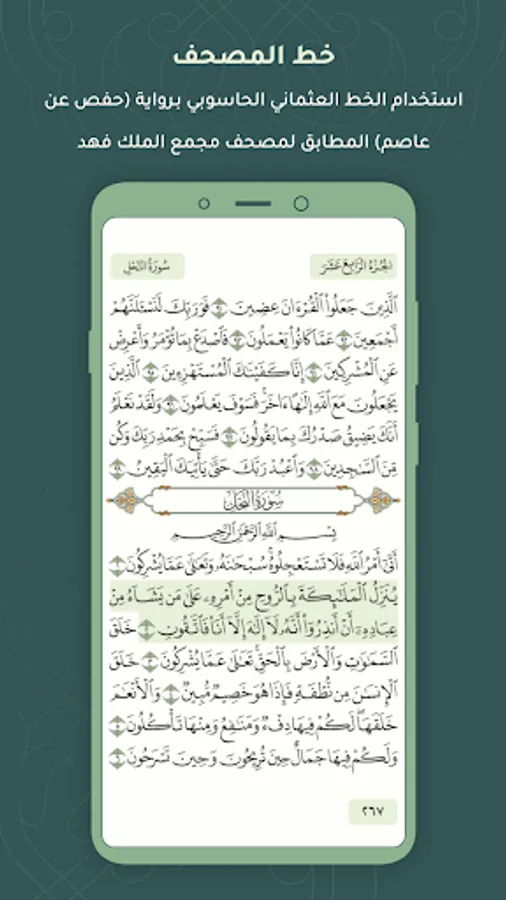 خط المصحف
استخدام الخط العثماني الحاسوبي برواية (حفص عن
عاصم) المطابق لمصحف مجمع الملك فهد
الجزء الرابع عشر
سورة النحل
ٱلَّذِينَ جَعَلُوا۟ ٱلْقُرْءَانَ عِضِينَ ٩١ فَوَرَبِّكَ لَنَسْـَٔلَنَّهُمْ
أَجْمَعِينَ ٩٢ عَمَّا كَانُوا۟ يَعْمَلُونَ ٩٣ فَٱصْدَعْ بِمَا تُؤْمَرُ وَأَعْرِضْ
عَنِ ٱلْمُشْرِكِينَ ٩٤ إِنَّا كَفَيْنَـٰكَ ٱلْمُسْتَهْزِءِينَ ٩٥ ٱلَّذِينَ
يَجْعَلُونَ مَعَ ٱللَّهِ إِلَـٰهًا ءَاخَرَ ۚ فَسَوْفَ يَعْلَمُونَ ٩٦ وَلَقَدْ نَعْلَمُ
أَنَّكَ يَضِيقُ صَدْرُكَ بِمَا يَقُولُونَ ٩٧ فَسَبِّحْ بِحَمْدِ رَبِّكَ وَكُن
مِّنَ ٱلسَّـٰجِدِينَ ٩٨ وَٱعْبُدْ رَبَّكَ حَتَّىٰ يَأْتِيَكَ ٱلْيَقِينُ ٩٩
سُورَةُ النَّحْلِ
بِسْمِ ٱللَّهِ ٱلرَّحْمَـٰنِ ٱلرَّحِيمِ
أَتَىٰٓ أَمْرُ ٱللَّهِ فَلَا تَسْتَعْجِلُوهُ ۚ سُبْحَـٰنَهُۥ وَتَعَـٰلَىٰ عَمَّا يُشْرِكُونَ ١
يُنَزِّلُ ٱلْمَلَـٰٓئِكَةَ بِٱلرُّوحِ مِنْ أَمْرِهِۦ عَلَىٰ مَن يَشَآءُ مِنْ
عِبَادِهِۦٓ أَنْ أَنذِرُوٓا۟ أَنَّهُۥ لَآ إِلَـٰهَ إِلَّآ أَنَا۠ فَٱتَّقُونِ ٢ خَلَقَ
ٱلسَّمَـٰوَٰتِ وَٱلْأَرْضَ بِٱلْحَقِّ ۚ تَعَـٰلَىٰ عَمَّا يُشْرِكُونَ ٣ خَلَقَ
ٱلْإِنسَـٰنَ مِن نُّطْفَةٍ فَإِذَا هُوَ خَصِيمٌ مُّبِينٌ ٤ وَٱلْأَنْعَـٰمَ
خَلَقَهَا ۗ لَكُمْ فِيهَا دِفْءٌ وَمَنَـٰفِعُ وَمِنْهَا تَأْكُلُونَ ٥
وَلَكُمْ فِيهَا جَمَالٌ حِينَ تُرِيحُونَ وَحِينَ تَسْرَحُونَ ٦
٢٦٧